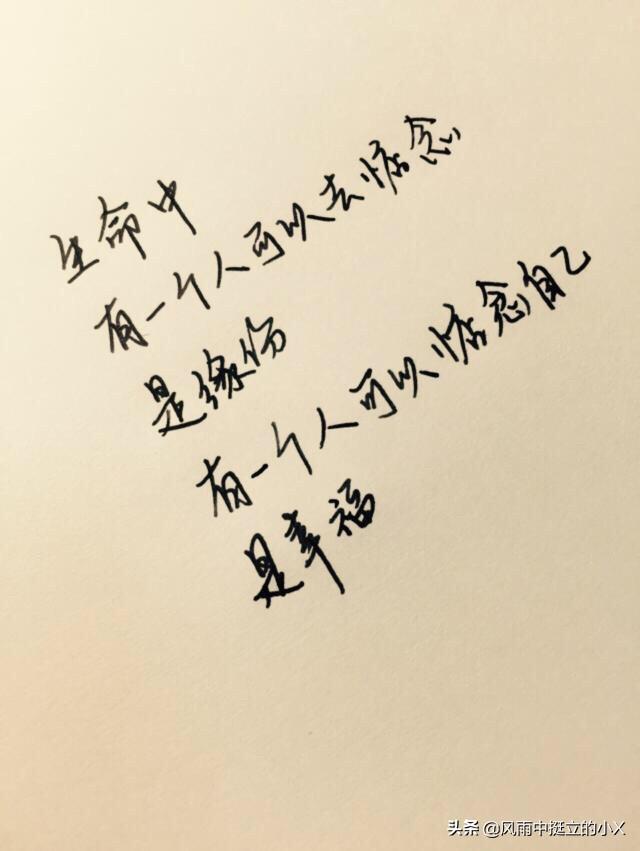 生命中
有一个人可以去惦念
是缘份
有一个人可以惦念自己
是幸福
头条 @风雨中挺立的小X